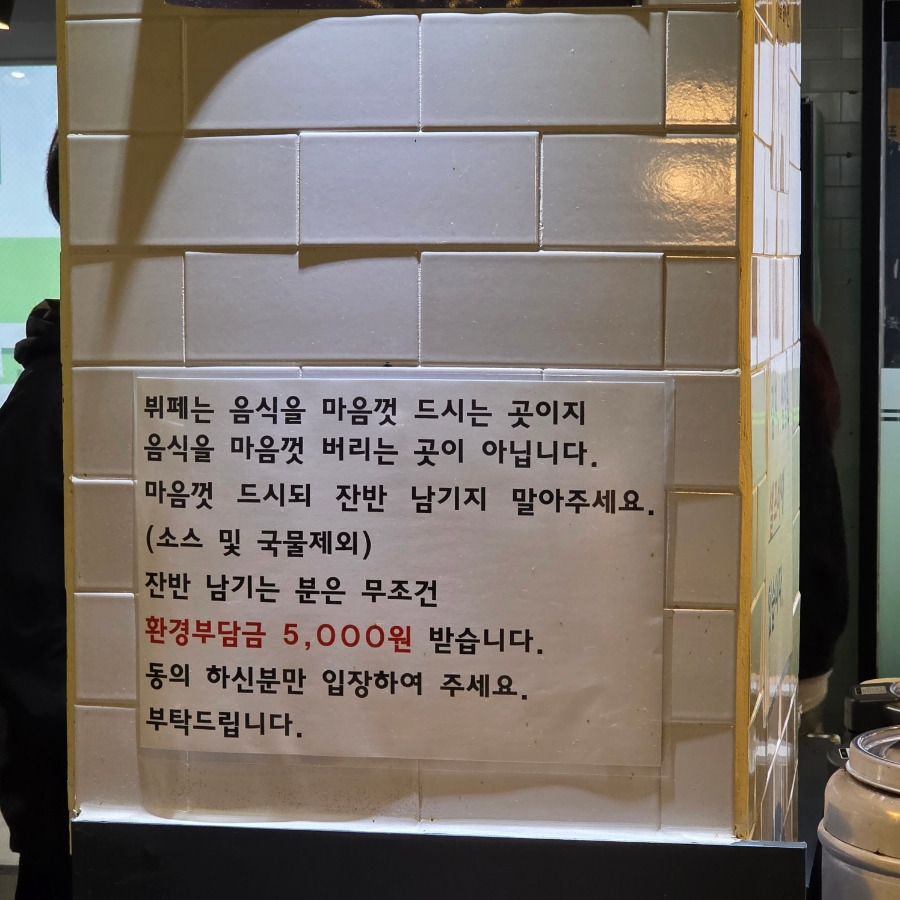 뷔페는 음식을 마음껏 드시는 곳이지
음식을 마음껏 버리는 곳이 아닙니다.
마음껏 드시되 잔반 남기지 말아주세요.
(소스 및 국물제외)
잔반 남기는 분은 무조건
환경부담금 5,000원 받습니다.
동의 하신분만 입장하여 주세요.
부탁드립니다.